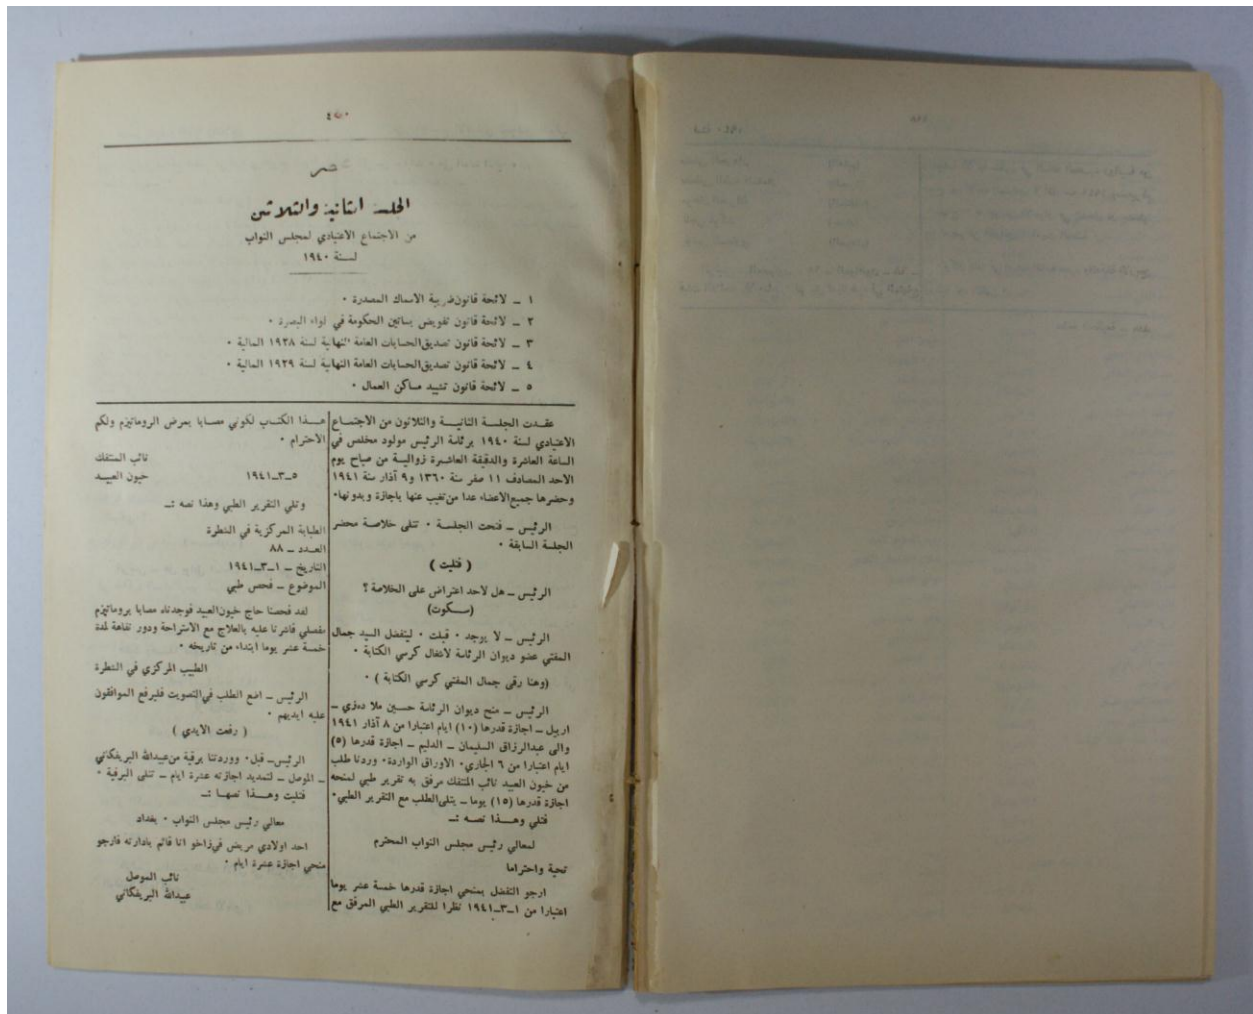 محضر
الجلسة الثانية والثلاثين
من الاجتماع الاعتيادي لمجلس النواب
لسنة ١٩٤٠
١ ــ لائحة قانون ضريبة الاسماك المصدرة ٠
٢ ــ لائحة قانون تفويض بساتين الحكومة في لواء البصرة ٠
٣ ــ لائحة قانون تصديق الحسابات العامة النهائية لسنة ١٩٣٨ المالية ٠
٤ ــ لائحة قانون تصديق الحسابات العامة النهائية لسنة ١٩٣٩ المالية ٠
٥ ــ لائحة قانون تشييد مساكن العمال ٠
عقدت الجلسة الثانية والثلاثون من الاجتماع
الاعتيادي لسنة ١٩٤٠ برئاسة الرئيس مولود مخلص في
الساعة العاشرة والدقيقة العاشرة زوالية من صباح يوم
الاحد المصادف ١١ صفر سنة ١٣٦٠ و٩ آذار سنة ١٩٤١
وحضرها جميع الاعضاء عدا من تغيب عنها باجازة وبدونها٠
الرئيس ــ فتحت الجلسة ٠ تتلى خلاصة محضر
الجلسة السابقة ٠
( فتليت )
الرئيس ــ هل لاحد اعتراض على الخلاصة ؟
(سكوت)
الرئيس ــ لا يوجد ٠ قبلت ٠ ليتفضل السيد جمال
المفتي عضو ديوان الرئاسة لاشغال كرسي الكتابة ٠
(وهنا رقى جمال المفتي كرسي الكتابة ) ٠
الرئيس ــ منح ديوان الرئاسة حسين ملا دەزي ــ
اربيل ــ اجازة قدرها (١٠) ايام اعتبارا من ٨ آذار ١٩٤١
والى عبدالرزاق السليمان ــ الدليم ــ اجازة قدرها (٥)
ايام اعتبارا من ٦ الجاري٠ الاوراق الواردة٠ وردنا طلب
من خيون العبيد نائب المنتفك مرفق به تقرير طبي لمنحه
اجازة قدرها (١٥) يوما ــ يتلى الطلب مع التقرير الطبي٠
فتلي وهذا نصه :ــ
لمعالي رئيس مجلس النواب المحترم
تحية واحتراما
ارجو التفضل بمنحي اجازة قدرها خمسة عشر يوما
اعتبارا من ١ــ٣ــ١٩٤١ نظرا للتقرير الطبي المرفق مع
هذا الكتب لكوني مصابا بمرض الروماتيزم ولكم
الاحترام ٠
نائب المنتفك
٥ــ٣ــ١٩٤١ خيون العبيد
وتلي التقرير الطبي وهذا نصه :ــ
الطبابة المركزية في الشطرة
العدد ــ ٨٨
التاريخ ــ ١ــ٣ــ١٩٤١
الموضوع ــ فحص طبي
لقد فحصنا حاج خيون العبيد فوجدناه مصابا بروماتيزم
مفصلي فاشرنا عليه بالعلاج مع الاستراحة ودور نقاهة لمدة
خمسة عشر يوما ابتداء من تاريخه ٠
الطبيب المركزي في الشطرة
الرئيس ــ اضع الطلب في التصويت فليرفع الموافقون
عليه ايديهم ٠
( رفعت الايدي )
الرئيس ــ قبل٠ ووردتنا برقية من عبدالله البريفكاني
ــ الموصل ــ لتمديد اجازته عشرة ايام ــ تتلى البرقية ٠
فتليت وهذا نصها :ــ
معالي رئيس مجلس النواب ٠ بغداد
احد اولادي مريض في زاخو انا قائم بادارته فارجو
منحي اجازة عشرة ايام ٠
نائب الموصل
عبدالله البريفكاني